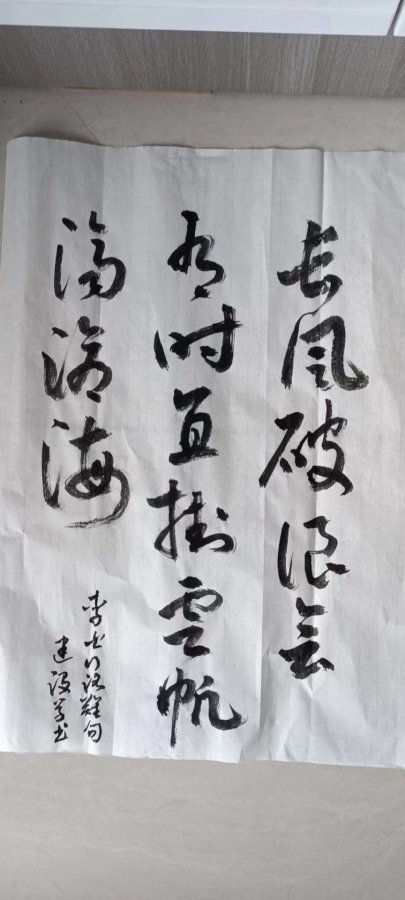 长风破浪会
有时直掛雲帆
济沧海
李白行路難句
建设学书